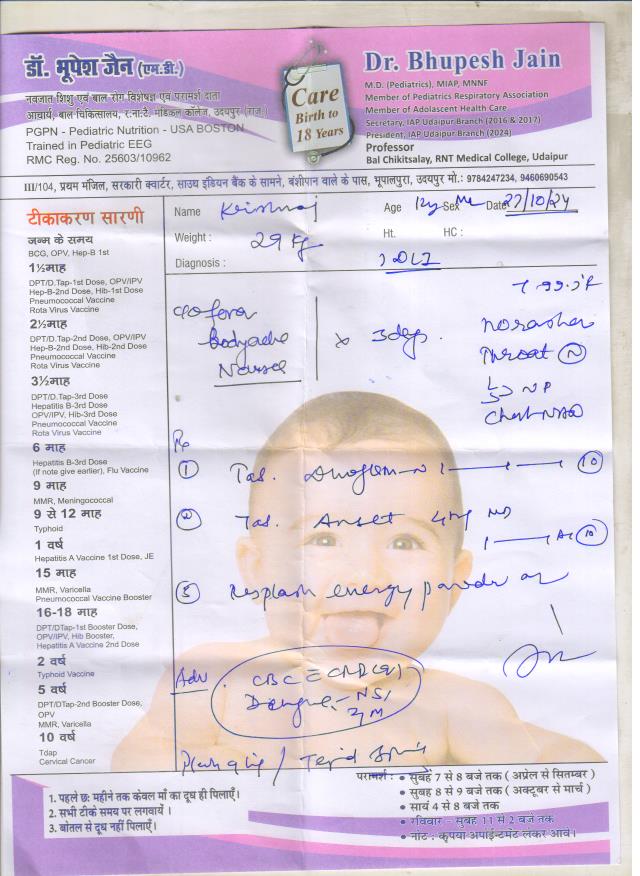 डॉ. भूपेश जैन (एम.डी.)
नवजात शिशु एवं बाल रोग विशेषज्ञ एवं परामर्श दाता
आचार्य, बाल चिकित्सालय, र.ना.टै. मेडिकल कॉलेज, उदयपुर (राज.)
PGPN - Pediatric Nutrition - USA BOSTON
Trained in Pediatric EEG
RMC Reg. No. 25603/10962
Care
Birth to
18 Years
Dr. Bhupesh Jain
M.D. (Pediatrics), MIAP, MNNF
Member of Pediatrics Respiratory Association
Member of Adolascent Health Care
Secretary, IAP Udaipur Branch (2016 & 2017)
President, IAP Udaipur Branch (2024)
Professor
Bal Chikitsalay, RNT Medical College, Udaipur
III/104, प्रथम मंजिल, सरकारी क्वार्टर, साउथ इडियन बैंक के सामने, बंशीपान वाले के पास, भूपालपुरा, उदयपुर मो.: 9784247234, 9460690543
टीकाकरण सारणी
जन्म के समय
BCG, OPV, Hep-B 1st
1½माह
DPT/D.Tap-1st Dose, OPV/IPV
Hep-B-2nd Dose, Hib-1st Dose
Pneumococcal Vaccine
Rota Virus Vaccine
2½माह
DPT/D.Tap-2nd Dose, OPV/IPV
Hep-B-2nd Dose, Hib-2nd Dose
Pneumococcal Vaccine
Rota Virus Vaccine
3½माह
DPT/D.Tap-3rd Dose
Hepatitis B-3rd Dose
OPV/IPV, Hib-3rd Dose
Pneumococcal Vaccine
Rota Virus Vaccine
6 माह
Hepatitis B-3rd Dose
(If note give earlier), Flu Vaccine
9 माह
MMR, Meningococcal
9 से 12 माह
Typhoid
1 वर्ष
Hepatitis A Vaccine 1st Dose, JE
15 माह
MMR, Varicella
Pneumococcal Vaccine Booster
16-18 माह
DPT/DTap-1st Booster Dose,
OPV/IPV, Hib Booster,
Hepatitis A Vaccine 2nd Dose
2 वर्ष
Typhoid Vaccine
5 वर्ष
DPT/DTap-2nd Booster Dose,
OPV
MMR, Varicella
10 वर्ष
Tdap
Cervical Cancer
Name Krishnaj Age Sex Date 27/10/24
Weight : 29 kg Ht. HC :
Diagnosis :
99.2°F
c/o fever
Bodyache
Nausea
x 3 days.
no rashes
Throat (N)
Chest NAD
Rx
① Tab. 10
② Tab. Anset 4mg MD
10
③ Resplash energy powder
Adv. CBC
Dengue - NS1
IgM
परामर्श : • सुबह 7 से 8 बजे तक ( अप्रेल से सितम्बर )
• सुबह 8 से 9 बजे तक ( अक्टूबर से मार्च )
• सायं 4 से 8 बजे तक
• रविवार - सुबह 11 से 2 बजे तक
• नोट : कृपया अपाईन्टमेंट लेकर आवें।
1. पहले छः महीने तक केवल माँ का दूध ही पिलाएँ।
2. सभी टीके समय पर लगवायें ।
3. बोतल से दूध नहीं पिलाएँ।